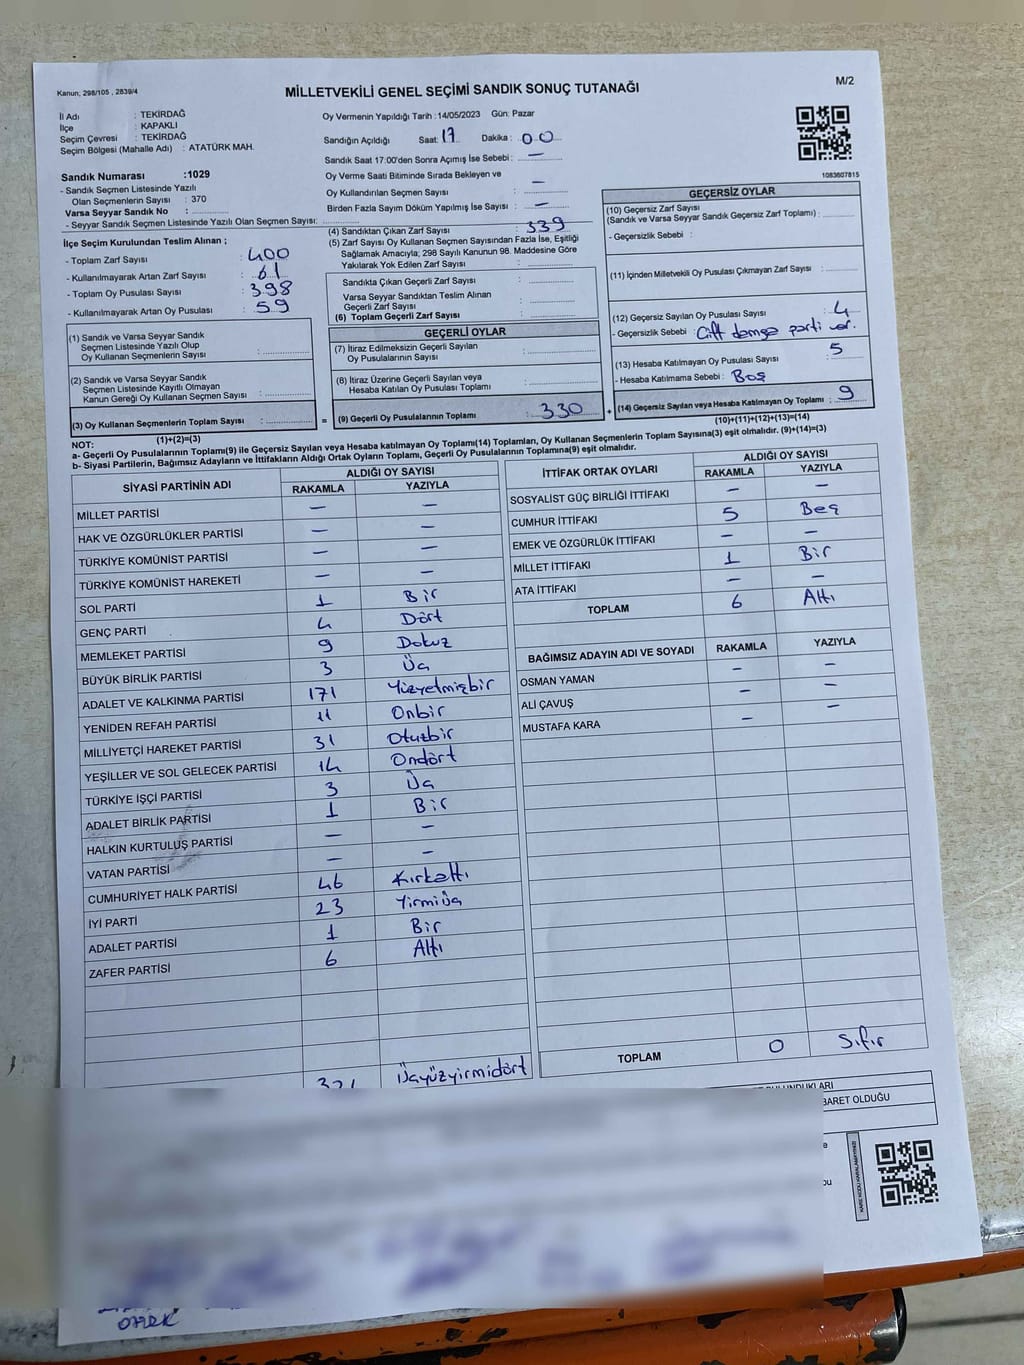 Kanun, 298/105 , 2839/4
MİLLETVEKİLİ GENEL SEÇİMİ SANDIK SONUÇ TUTANAĞI
M/2
İl Adı : TEKİRDAĞ
İlçe : KAPAKLI
Seçim Çevresi : TEKİRDAĞ
Seçim Bölgesi (Mahalle Adı) : ATATÜRK MAH.
Oy Vermenin Yapıldığı Tarih : 14/05/2023 Gün: Pazar
Sandığın Açıldığı Saat: 17 Dakika : 00
Sandık Saat 17:00'den Sonra Açımış İse Sebebi : —
Oy Verme Saati Bitiminde Sırada Bekleyen ve
Oy Kullandırılan Seçmen Sayısı : —
Birden Fazla Sayım Döküm Yapılmış İse Sayısı : —
1083607815
Sandık Numarası :1029
- Sandık Seçmen Listesinde Yazılı
Olan Seçmenlerin Sayısı : 370
Varsa Seyyar Sandık No :
- Seyyar Sandık Seçmen Listesinde Yazılı Olan Seçmen Sayısı:
İlçe Seçim Kurulundan Teslim Alınan ;
- Toplam Zarf Sayısı : 400
- Kullanılmayarak Artan Zarf Sayısı : 61
- Toplam Oy Pusulası Sayısı : 398
- Kullanılmayarak Artan Oy Pusulası : 59
(1) Sandık ve Varsa Seyyar Sandık
Seçmen Listesinde Yazılı Olup
Oy Kullanan Seçmenlerin Sayısı :
(2) Sandık ve Varsa Seyyar Sandık
Seçmen Listesinde Kayıtlı Olmayan
Kanun Gereği Oy Kullanan Seçmen Sayısı :
(3) Oy Kullanan Seçmenlerin Toplam Sayısı :
(1)+(2)=(3)
(4) Sandıktan Çıkan Zarf Sayısı : 339
(5) Zarf Sayısı Oy Kullanan Seçmen Sayısından Fazla İse, Eşitliği
Sağlamak Amacıyla; 298 Sayılı Kanunun 98. Maddesine Göre
Yakılarak Yok Edilen Zarf Sayısı :
Sandıkta Çıkan Geçerli Zarf Sayısı :
Varsa Seyyar Sandıktan Teslim Alınan
Geçerli Zarf Sayısı :
(6) Toplam Geçerli Zarf Sayısı :
GEÇERLİ OYLAR
(7) İtiraz Edilmeksizin Geçerli Sayılan
Oy Pusulalarının Sayısı :
(8) İtiraz Üzerine Geçerli Sayılan veya
Hesaba Katılan Oy Pusulası Toplamı :
= (9) Geçerli Oy Pusulalarının Toplamı : 330 +
GEÇERSİZ OYLAR
(10) Geçersiz Zarf Sayısı
(Sandık ve Varsa Seyyar Sandık Geçersiz Zarf Toplamı) :
- Geçersizlik Sebebi :
(11) İçinden Milletvekili Oy Pusulası Çıkmayan Zarf Sayısı :
(12) Geçersiz Sayılan Oy Pusulası Sayısı : 4
- Geçersizlik Sebebi : Çift damga parti var.
(13) Hesaba Katılmayan Oy Pusulası Sayısı : 5
- Hesaba Katılmama Sebebi : Boş
(14) Geçersiz Sayılan veya Hesaba Katılmayan Oy Toplamı : 9
(10)+(11)+(12)+(13)=(14)
NOT:
a- Geçerli Oy Pusulalarının Toplamı(9) ile Geçersiz Sayılan veya Hesaba katılmayan Oy Toplamı(14) Toplamları, Oy Kullanan Seçmenlerin Toplam Sayısına(3) eşit olmalıdır. (9)+(14)=(3)
b- Siyasi Partilerin, Bağımsız Adayların ve İttifakların Aldığı Ortak Oyların Toplamı, Geçerli Oy Pusulalarının Toplamına(9) eşit olmalıdır.
SİYASİ PARTİNİN ADI ALDIĞI OY SAYISI
RAKAMLA YAZIYLA
MİLLET PARTİSİ — —
HAK VE ÖZGÜRLÜKLER PARTİSİ — —
TÜRKİYE KOMÜNİST PARTİSİ — —
TÜRKİYE KOMÜNİST HAREKETİ — —
SOL PARTİ 1 Bir
GENÇ PARTİ 4 Dört
MEMLEKET PARTİSİ 9 Dokuz
BÜYÜK BİRLİK PARTİSİ 3 Üç
ADALET VE KALKINMA PARTİSİ 171 Yüzyetmişbir
YENİDEN REFAH PARTİSİ 11 Onbir
MİLLİYETÇİ HAREKET PARTİSİ 31 Otuzbir
YEŞİLLER VE SOL GELECEK PARTİSİ 14 Ondört
TÜRKİYE İŞÇİ PARTİSİ 3 Üç
ADALET BİRLİK PARTİSİ 1 Bir
HALKIN KURTULUŞ PARTİSİ — —
VATAN PARTİSİ — —
CUMHURİYET HALK PARTİSİ 46 Kırkaltı
İYİ PARTİ 23 Yirmiüç
ADALET PARTİSİ 1 Bir
ZAFER PARTİSİ 6 Altı
Üçyüzyirmidört
İTTİFAK ORTAK OYLARI ALDIĞI OY SAYISI
RAKAMLA YAZIYLA
SOSYALİST GÜÇ BİRLİĞİ İTTİFAKI — —
CUMHUR İTTİFAKI 5 Beş
EMEK VE ÖZGÜRLÜK İTTİFAKI — —
MİLLET İTTİFAKI 1 Bir
ATA İTTİFAKI — —
TOPLAM 6 Altı
BAĞIMSIZ ADAYIN ADI VE SOYADI RAKAMLA YAZIYLA
OSMAN YAMAN — —
ALİ ÇAVUŞ — —
MUSTAFA KARA — —
TOPLAM 0 Sıfır
BARET OLDUĞU